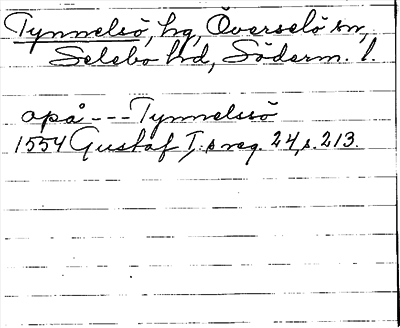 Tynnelsö, hg, Överselö sn,
Selebo hd, Söderm. l.
opå --- Tynnelssö
1554 Gustaf I:s reg. 24, s. 213.